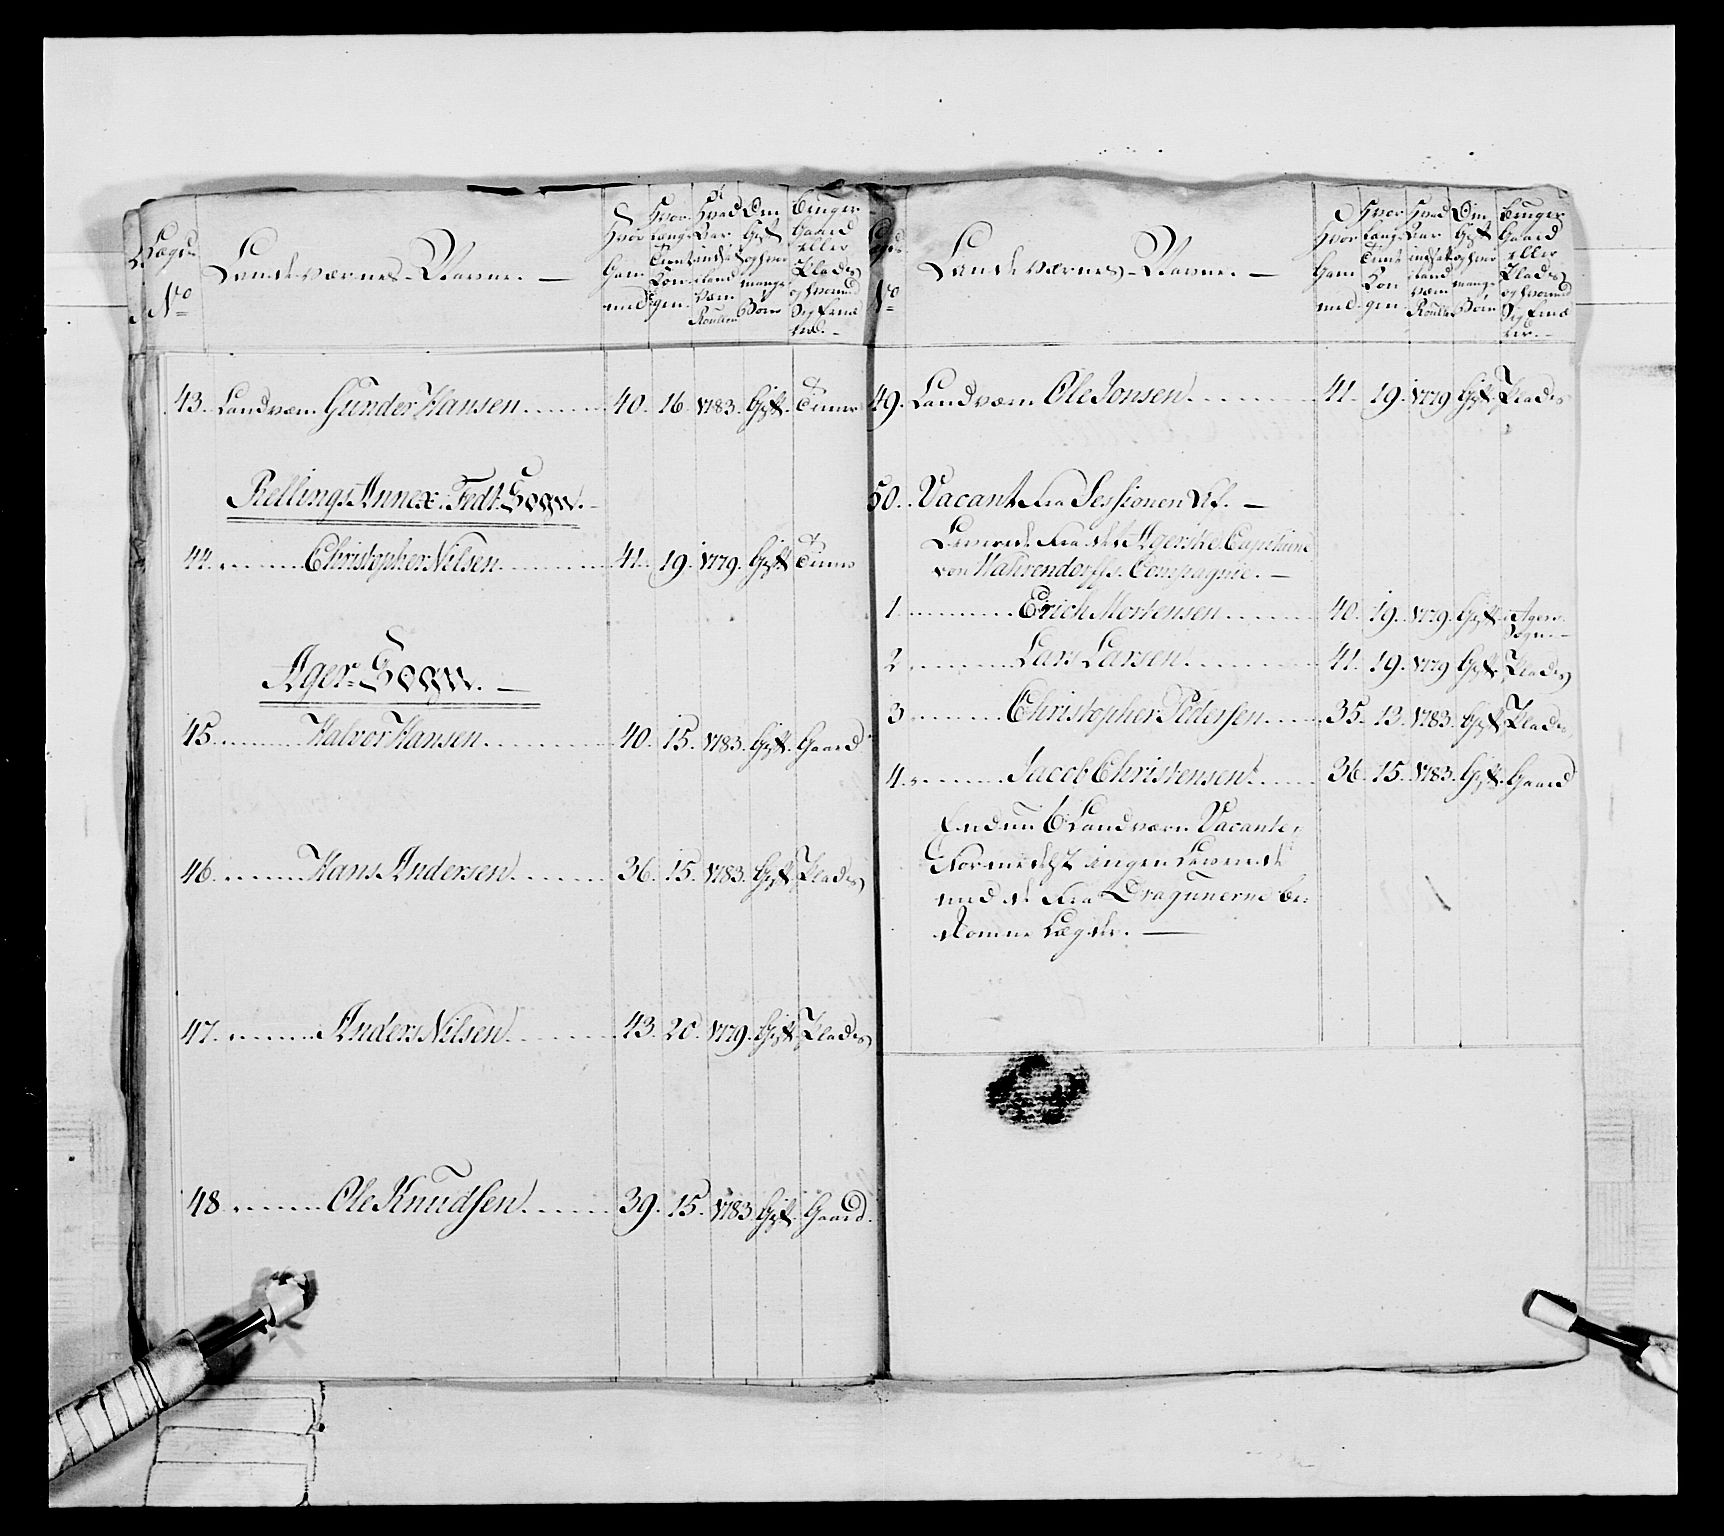 Lægd No
Landeværnes Navne. —
Hvor Gammel
Hvor længe Tient Kongen
Hvad Aar indsat Landværn Roullen
Om Gift og hvor mange Børn
Bruger Gaard eller Plads og hvormed Sig Ernærer. —
43. Landværn Gunder Hansen 40. 16. 1783. Gift. Tiener
Rellings Annex. Fedt Sogn. —
44. Christopher Nilsen 41. 19. 1779. Gift Tiener
Ager Sogn. —
45. Halvor Hansen 40. 15. 1783. Gift. Gaard
46. Hans Andersen 36. 15. 1783. Gift Plads
47. Anders Nilsen 43. 20. 1779. Gift Plads
48. Ole Knudsen 39. 15. 1783 Gift. Gaard.
Lægd No
Landeværnes Navne. —
Hvor Gammel
Hvor længe Tient Kongen
Hvad Aar indsat Landværn Roullen
Om Gift og hvor mange Børn
Bruger Gaard eller Plads og hvormed Sig Ernærer. —
49. Landværn Ole Jonsen 41. 19. 1779 Gift Plads
50. Vacant fra Sessionen af. —
Leverede fra det Agerske Capitaine
von Wahrendorffs Compagnie. —
1 Erich Mortensen 40. 19. 1779. Gift. Agers Sogn —
2 Lars Larsen 41. 19. 1779 Gift Plads
3 Christopher Pedersen 35. 13. 1783. Gift Plads
4. Jacob Christensen 36. 15. 1783. Gift. Gaard
Endnu 6 Landværn Vacante,
Formedelst ingen Leverede
med de fra Dragunerne be-
komne Lægder. —